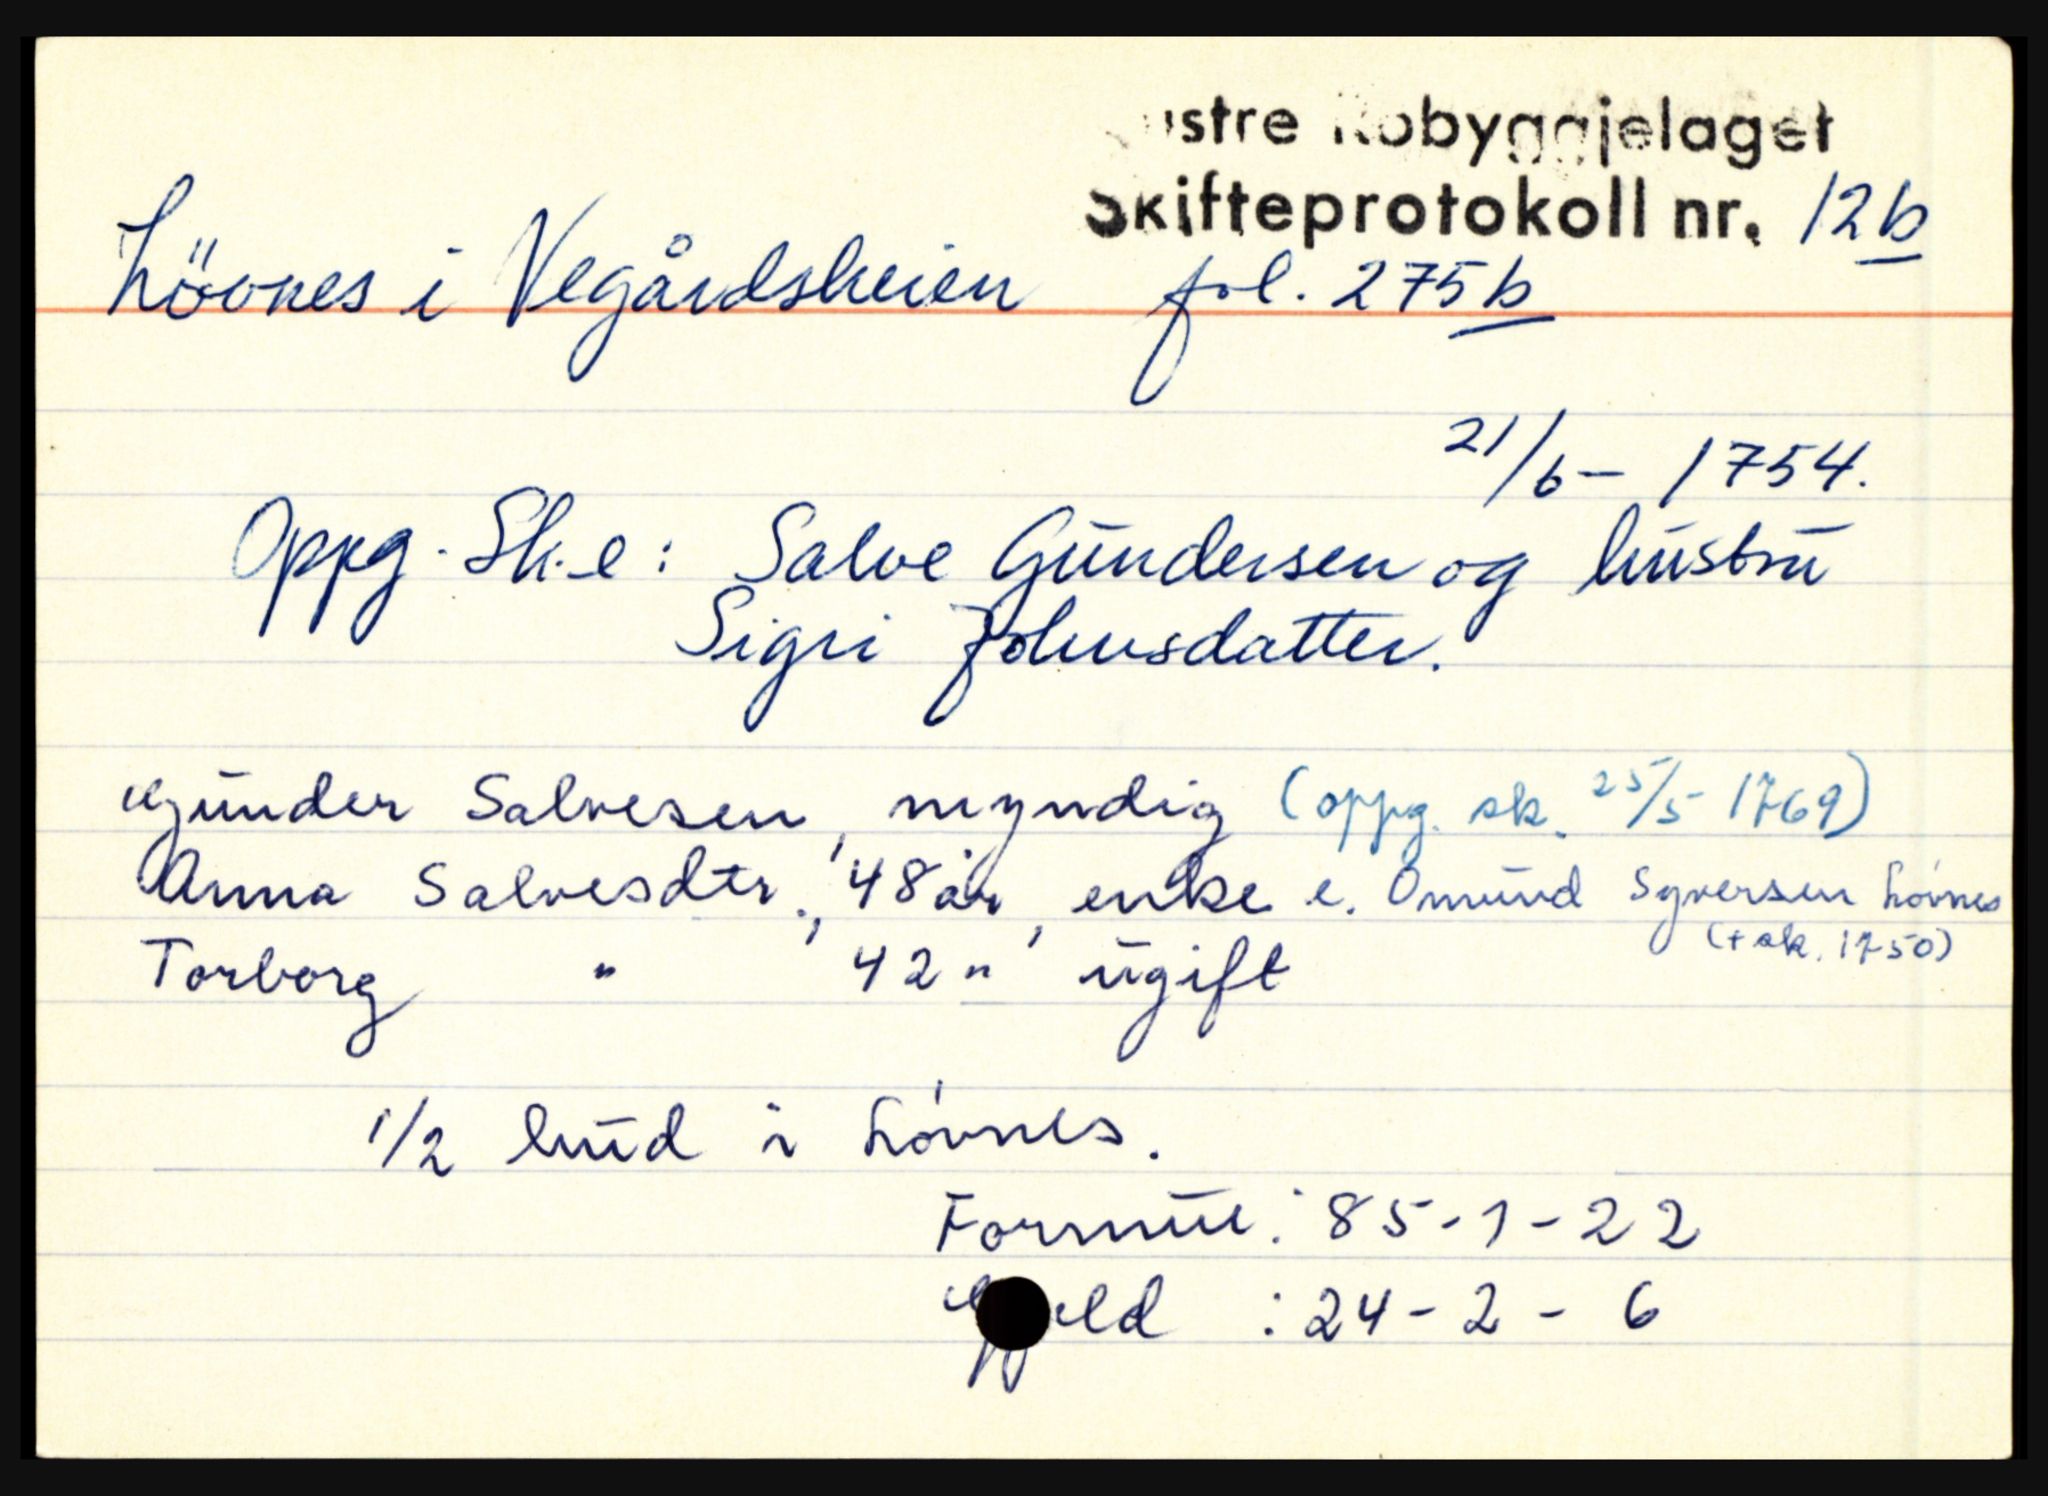 Østre Robyggjelaget
Skifteprotokoll nr. 12b
Lövnes i Vegårdsheien fol. 275b
21/6 - 1754.
Oppg. Sk. e: Salve Gundersen og hustru
Sigri Johnsdatter.
Gunder Salvesen, myndig (oppg. sk. 25/5 1769)
Anna Salvesdtr., 48 år, enke e. Omund Syversen Lövnes
(+ sk. 1750)
Torborg " , 42 " , ugift
1/2 hud i Lövnes.
Formue: 85-1-22
Gjeld : 24-2-6